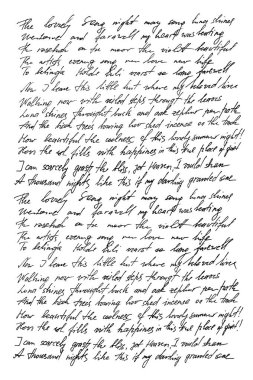 The lovely song night may song luna shines
Welcome and farewell my heart was beating
The rosebud on the moor the violet beautiful
The artists evening song new love new life
To belinda Holds Lili most so love farewell
Now I leave this little hut where my beloved lives
Walking now with veiled steps through the leaves
Luna shines through bush and oak zephyr per path
And the birch trees bowing low shed incense on the track
How beautiful the coolness of this lovely summer night!!
How the soul fills with happiness in this true place of quiet!
I can scarcely grasp the bliss, yet Heaven, I would shun
A thousand nights like this if my darling granted one
The lovely song night may song luna shines
Welcome and farewell my heart was beating
The rosebud on the moor the violet beautiful
The artists evening song new love new life
To belinda Holds Lili most so love farewell
Now I leave this little hut where my beloved lives
Walking now with veiled steps through the leaves
Luna shines through bush and oak zephyr per path
And the birch trees bowing low shed incense on the track
How beautiful the coolness of this lovely summer night!!
How the soul fills with happiness in this true place of quiet!
I can scarcely grasp the bliss, yet Heaven, I would shun
A thousand nights like this if my darling granted one